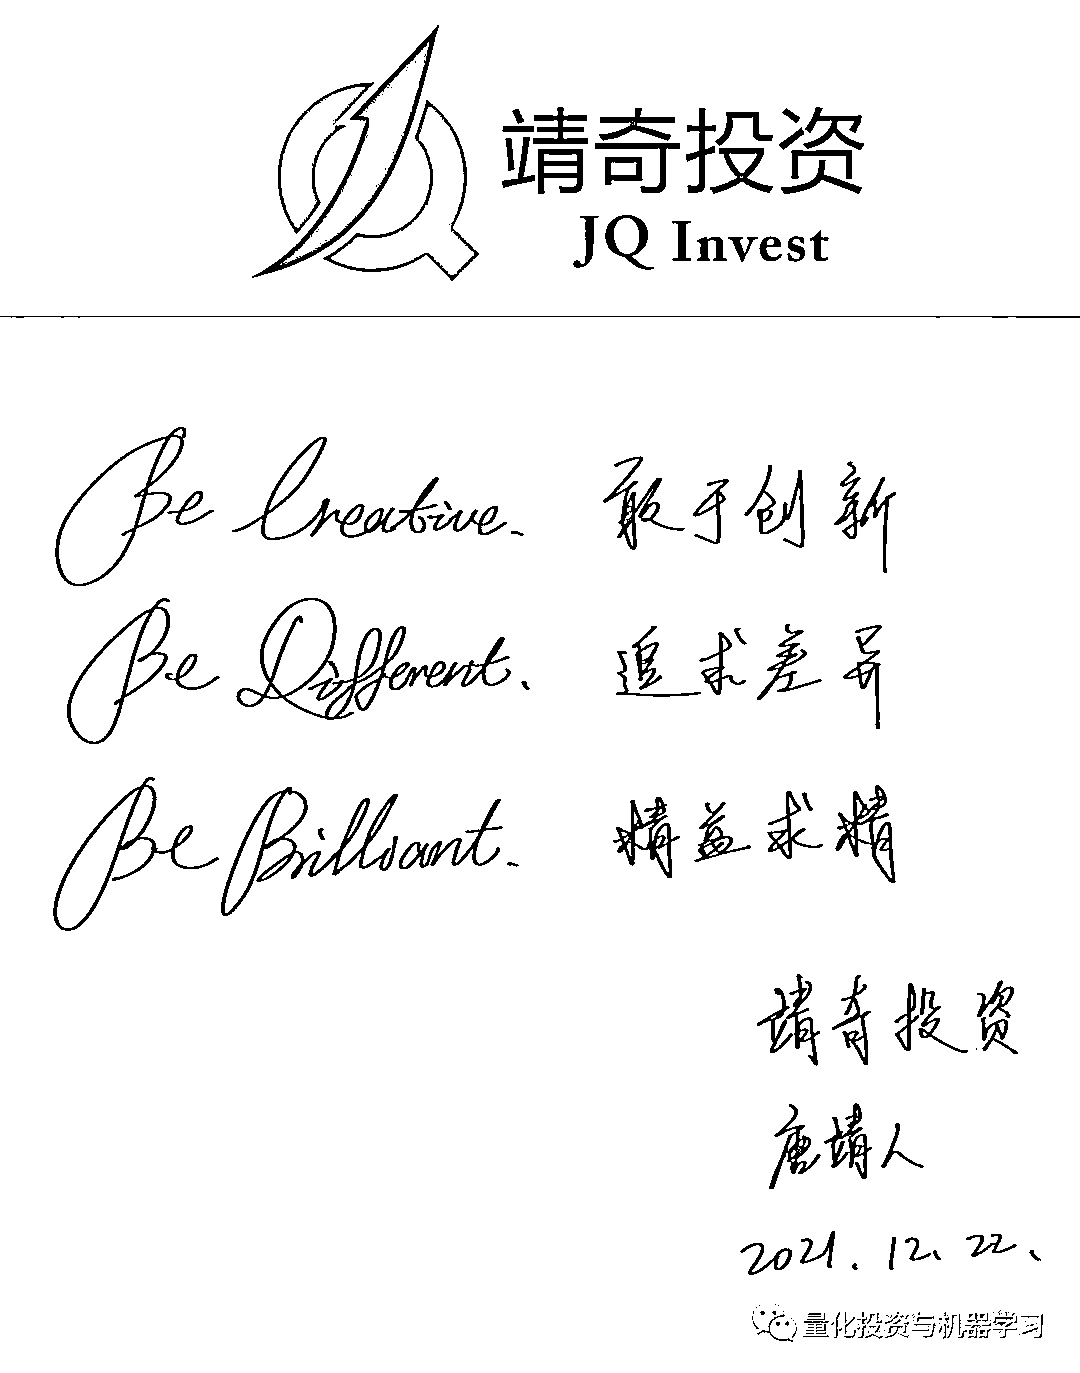 靖奇投资
JQ Invest
Be Creative. 敢于创新
Be Different. 追求差异
Be Brilliant. 精益求精
靖奇投资
唐靖人
2021.12.22.
量化投资与机器学习